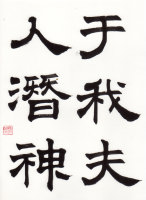 于我夫
人潛神